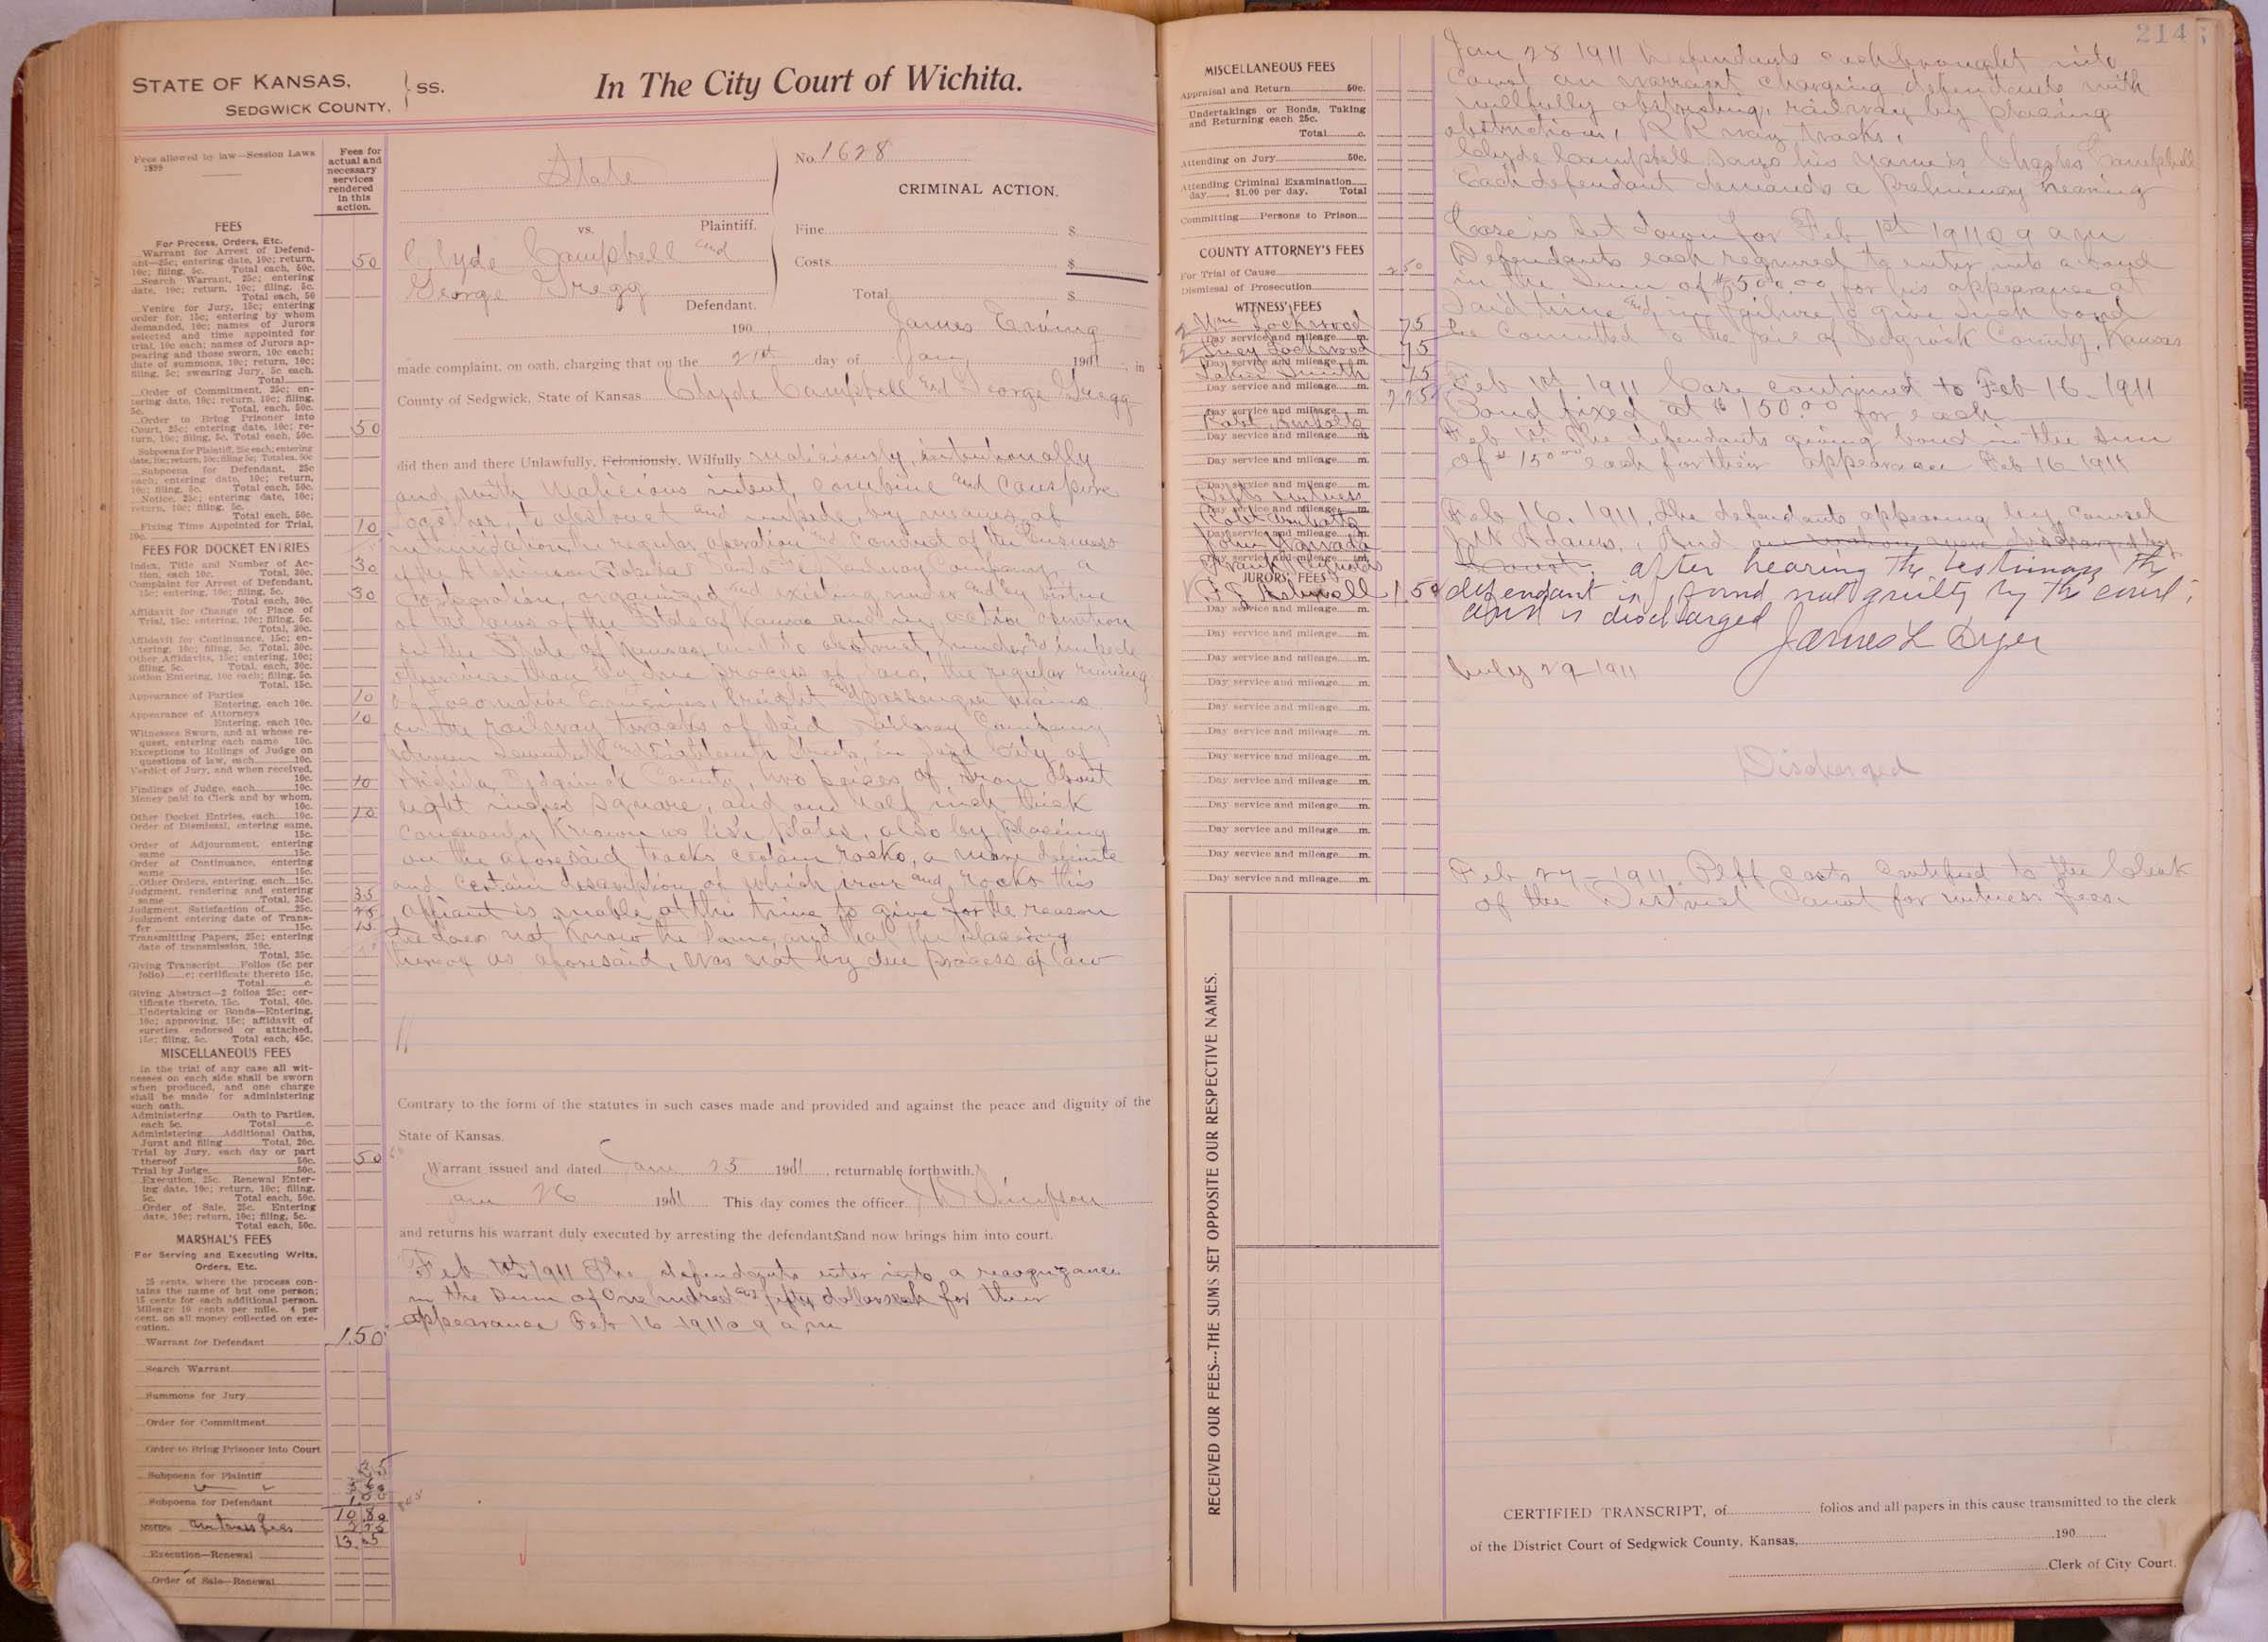 STATE OF KANSAS,
SEDGWICK COUNTY.
} SS.
In The City Court of Wichita.
Fees allowed by law—Session Laws
1899
Fees for
actual and
necessary
services
rendered
in this
action.
FEES
For Process, Orders, Etc.
Warrant for Arrest of Defend-
ant—25c; entering date, 10c; return,
10c; filing, 5c. Total each, 50c. 50
Search Warrant, 25c; entering
date, 10c; return, 10c; filing, 5c.
Total each, 50
Venire for Jury, 15c; entering
order for, 15c; entering by whom
demanded, 10c; names of Jurors
selected and time appointed for
trial, 10c each; names of Jurors ap-
pearing and those sworn, 10c each;
date of summons, 10c; return, 10c;
filing, 5c; swearing Jury, 5c each.
Total
Order of Commitment, 25c; en-
tering date, 10c; return, 10c; filing,
5c. Total, each, 50c.
Order to Bring Prisoner into
Court, 25c; entering date, 10c; re-
turn, 10c; filing, 5c. Total each, 50c. 50
Subpoena for Plaintiff, 25c each; entering
date, 10c; return, 10c; filing 5c; Total ea. 50c
Subpoena for Defendant, 25c
each; entering date, 10c; return,
10c; filing, 5c. Total each, 50c.
Notice, 25c; entering date, 10c;
return, 10c; filing, 5c.
Total each, 50c.
Fixing Time Appointed for Trial,
10c. 10
FEES FOR DOCKET ENTRIES
Index, Title and Number of Ac-
tion, each 10c. Total, 20c. 30
Complaint for Arrest of Defendant,
15c; entering, 10c; filing, 5c.
Total each, 30c. 30
Affidavit for Change of Place of
Trial, 15c; entering, 10c; filing, 5c.
Total, 20c.
Affidavit for Continuance, 15c; en-
tering, 10c; filing, 5c. Total, 30c.
Other Affidavits, 15c; entering, 10c;
filing, 5c. Total, each, 30c.
Motion Entering, 10c each; filing, 5c.
Total, 15c.
Appearance of Parties
Entering, each 10c. 10
Appearance of Attorneys
Entering, each 10c. 10
Witnesses Sworn, and at whose re-
quest, entering each name 10c.
Exceptions to Rulings of Judge on
questions of law, each 10c.
Verdict of Jury, and when received,
10c.
Findings of Judge, each 10c. 10
Money paid to Clerk and by whom,
10c.
Other Docket Entries, each 10c. 10
Order of Dismissal, entering same,
15c.
Order of Adjournment, entering
same 15c.
Order of Continuance, entering
same 15c.
Other Orders, entering, each 15c.
Judgment, rendering and entering
same Total, 35c. 35
Judgment, Satisfaction of 25c. 25
Judgment entering date of Trans-
fer 15c. 15
Transmitting Papers, 25c; entering
date of transmission, 10c.
Total, 35c.
Giving Transcript Folios (5c per
folio) c; certificate thereto 15c.
Total c.
Giving Abstract—2 folios 25c; cer-
tificate thereto, 15c. Total, 40c.
Undertaking or Bonds—Entering,
10c; approving, 15c; affidavit of
sureties endorsed or attached,
15c; filing, 5c. Total each, 45c.
MISCELLANEOUS FEES
In the trial of any case all wit-
nesses on each side shall be sworn
when produced, and one charge
shall be made for administering
such oath.
Administering Oath to Parties,
each 5c. Total c.
Administering Additional Oaths,
Jurat and filing Total, 20c.
Trial by Jury, each day or part
thereof 50c. 50
Trial by Judge 50c.
Execution, 25c. Renewal Enter-
ing date, 10c; return, 10c; filing,
5c. Total each, 50c.
Order of Sale, 25c. Entering
date, 10c; return, 10c; filing, 5c.
Total each, 50c.
MARSHAL'S FEES
For Serving and Executing Writs,
Orders, Etc.
25 cents, where the process con-
tains the name of but one person;
15 cents for each additional person.
Mileage 10 cents per mile. 4 per
cent. on all money collected on exe-
cution.
Warrant for Defendant 1.50
Search Warrant
Summons for Jury
Order for Commitment
Order to Bring Prisoner into Court
Subpoena for Plaintiff
Subpoena for Defendant
10.80
witness fees
13.
Execution—Renewal
Order of Sale—Renewal
State
Plaintiff.
vs.
Clyde Campbell and
George Gregg
Defendant.
No. 1628
CRIMINAL ACTION.
Fine $
Costs $
Total $
190 , James Erving
made complaint, on oath, charging that on the 21st day of Jany 1911, in
County of Sedgwick, State of Kansas Clyde Campbell and George Gregg
did then and there Unlawfully, Feloniously, Wilfully maliciously, intentionally
and with malicious intent, combine and conspire
together, to obstruct and impede, by means of
intimidation the regular operation and conduct of the business
of the Atchinson Topeka & Santa Fe Railway Company, a
corporation, organized and existing under and by virtue
of the laws of the State of Kansas and in active operation
in the State of Kansas, and to obstruct, hinder and impede
otherwise than by due process of law, the regular running
of locomotive Engines, freight and passenger trains
on the railway tracks of said Railway Company
between Seventeenth and Eighteenth Streets, in said City of
Wichita, Sedgwick County, two peices of iron about
eight inches square, and one half inch thick
commonly known as fish plates, also by placing
on the aforesaid tracks certain rocks, a more definite
and certain description of which iron and rocks this
affiant is unable at this time to give for the reason
he does not know the same, and that the placing
thereof as aforesaid, was not by due process of law
Contrary to the form of the statutes in such cases made and provided and against the peace and dignity of the
State of Kansas.
Warrant issued and dated Jan 25 1911, returnable forthwith.
Jan 26 1911 This day comes the officer Simpson
and returns his warrant duly executed by arresting the defendants and now brings him into court.
Feb 1st 1911 The defendants enter into a recognizance
in the sum of One hundred and fifty dollars each for their
appearance Feb 16 1911 @ 9 a.m
214
MISCELLANEOUS FEES
Appraisal and Return 50c.
Undertakings or Bonds, Taking
and Returning each 25c.
Total c.
Attending on Jury 50c.
Attending Criminal Examination
day $1.00 per day. Total
Committing Persons to Prison
COUNTY ATTORNEY'S FEES
For Trial of Cause 250
Dismissal of Prosecution
WITNESS' FEES
Wm Lockwood 75
Day service and mileage m.
Lucy Lockwood 75
Day service and mileage m.
Smith 75
Day service and mileage m.
225
Day service and mileage m.
Day service and mileage m.
Day service and mileage m.
Day service and mileage m.
Defts witness
Day service and mileage m.
Day service and mileage m.
John
Day service and mileage m.
Frank Reynolds
JURORS' FEES
1.50
Day service and mileage m.
Day service and mileage m.
Day service and mileage m.
Day service and mileage m.
Day service and mileage m.
Day service and mileage m.
Day service and mileage m.
Day service and mileage m.
Day service and mileage m.
Day service and mileage m.
Day service and mileage m.
Day service and mileage m.
RECEIVED OUR FEES---THE SUMS SET OPPOSITE OUR RESPECTIVE NAMES.
Jan 28 1911 Defendants each brought into
Court on warrant charging defendants with
willfully obstructing railway by placing
obstructions, R R way tracks.
Clyde Campbell says his name is Charles Campbell
Each defendant demands a preliminary hearing
Case is set down for Feb 1st 1911 @ 9 a m
Defendants each required to enter into a bond
in the sum of $500.00 for his appearance at
said time and in failure to give such bond
be committed to the jail of Sedgwick County, Kansas
Feb 1st 1911 Case continued to Feb 16 - 1911
Bond fixed at $150.00 for each
Feb 1st The defendants giving bond in the sum
of $150.00 each for their appearance Feb 16-1911
Feb 16. 1911, The defendants appearing by counsel
J W Adams, And discharged by
Court. after hearing the testimony the
defendant is found not guilty by the court,
and is discharged
James L Dyer
July 29 1911
Discharged
Feb 27-1911 Plff costs certified to the Clerk
of the District Court for witness fees.
CERTIFIED TRANSCRIPT, of folios and all papers in this cause transmitted to the clerk
of the District Court of Sedgwick County, Kansas, 190
Clerk of City Court.